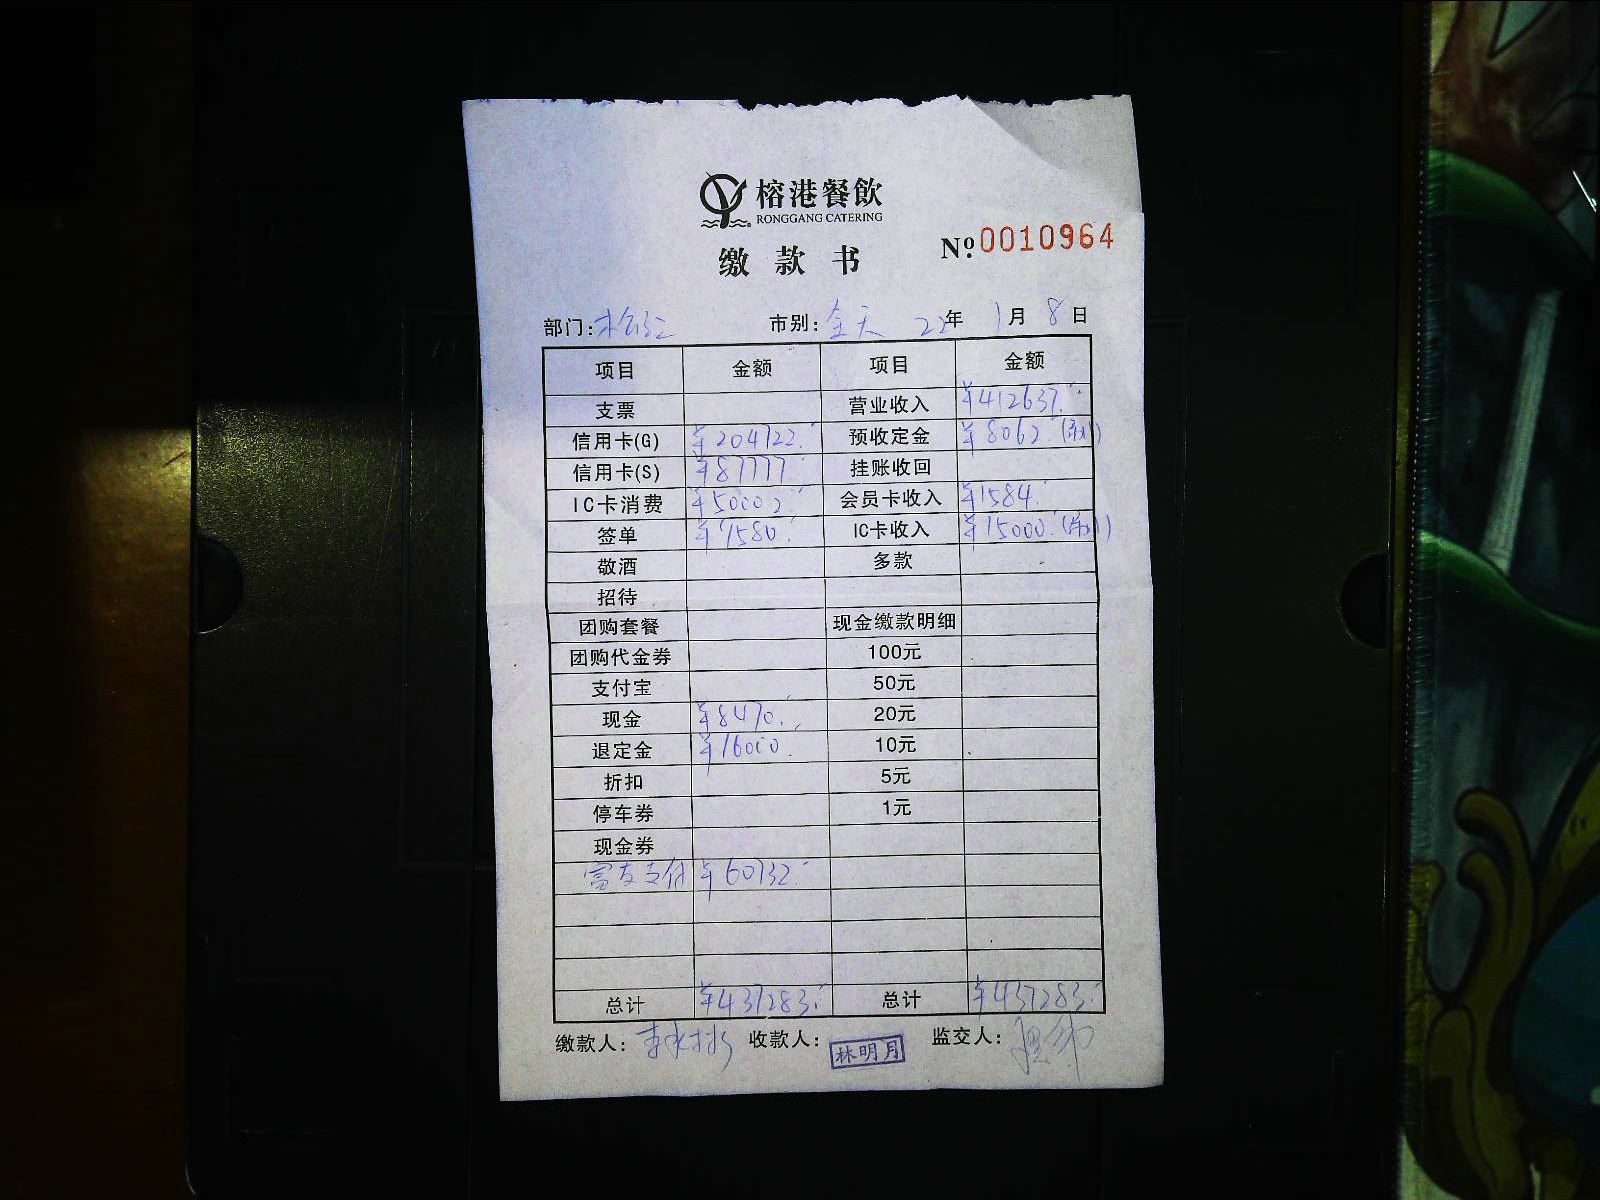 榕港餐飲
RONGGANG CATERING
缴款书 №0010964
部门: 市别:全天 22年 1月 8日
项目 金额 项目 金额
支票 营业收入 ¥412637.
信用卡(G) ¥204722. 预收定金 ¥8062.
信用卡(S) ¥87777. 挂账收回
IC卡消费 ¥50002. 会员卡收入 ¥1584.
签单 ¥9580. IC卡收入 ¥15000.
敬酒 多款
招待
团购套餐 现金缴款明细
团购代金券 100元
支付宝 50元
现金 ¥8470. 20元
退定金 ¥16000. 10元
折扣 5元
停车券 1元
现金券
富友支付 ¥60732.
总计 ¥437283. 总计 ¥437283.
缴款人: 收款人:林明月 监交人: